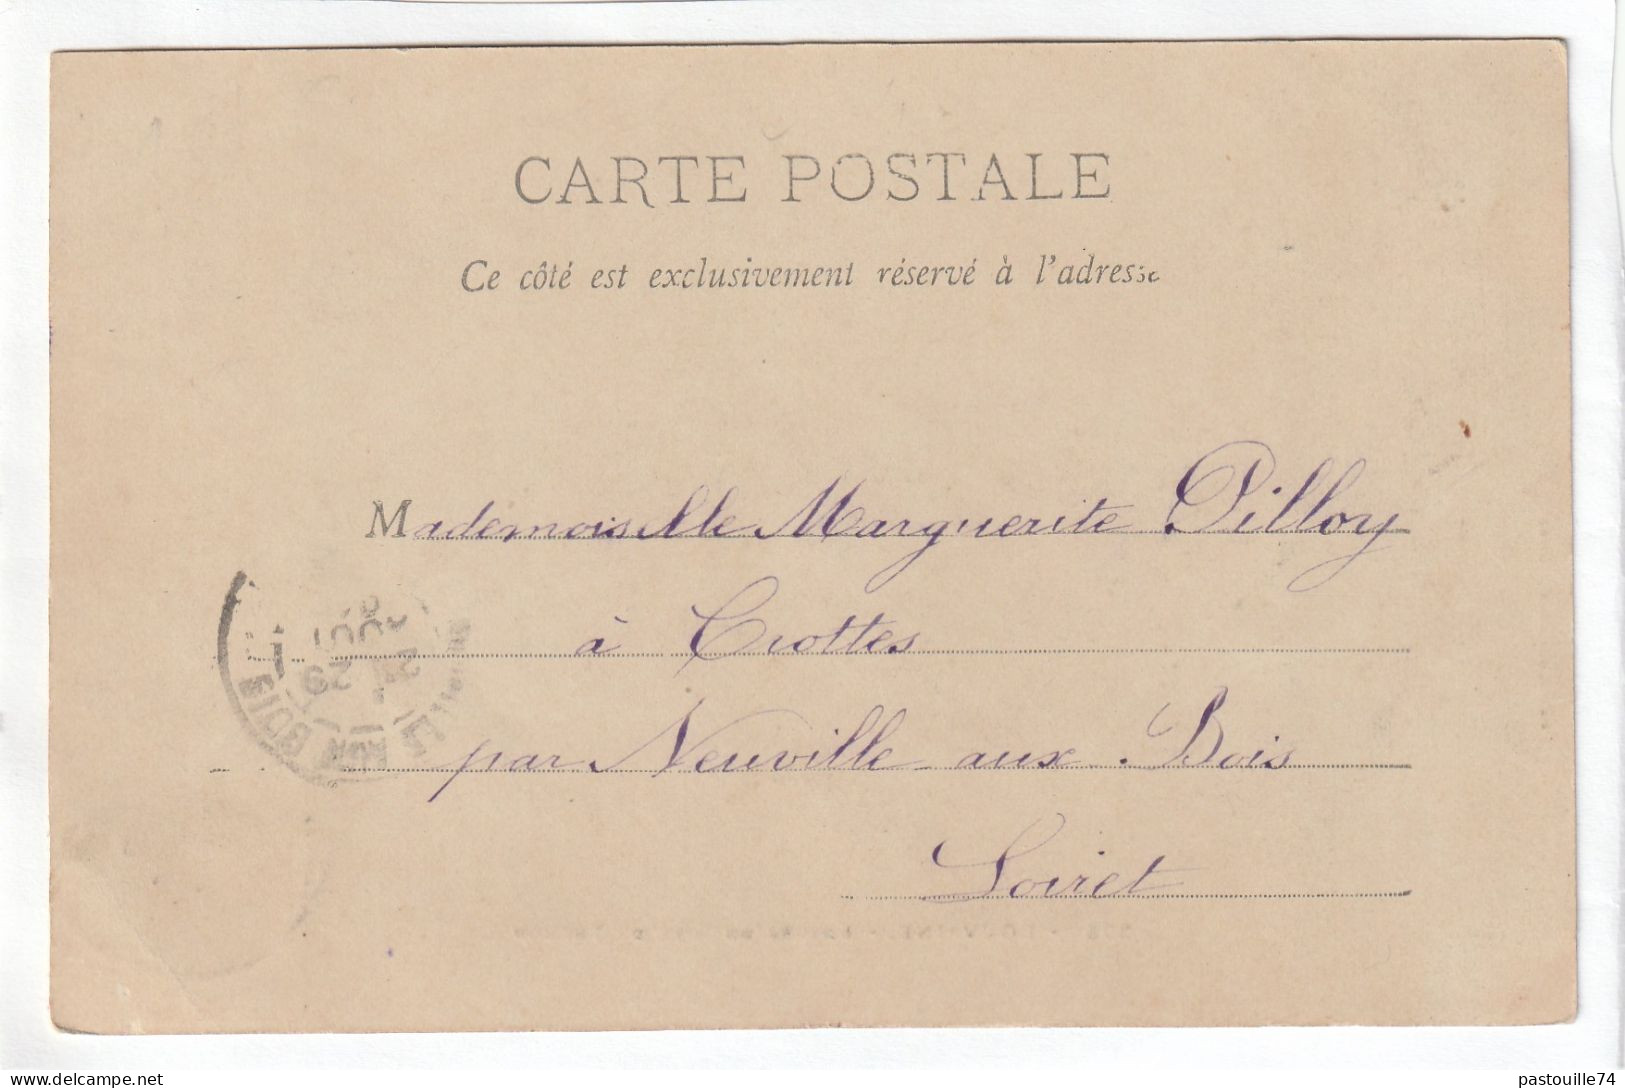 CARTE POSTALE
Ce côté est exclusivement réservé à l'adresse
Mademoiselle Marguerite Pilloy
à Crottes
par Neuville aux Bois
Loiret
www.delcampe.net
pastouille74